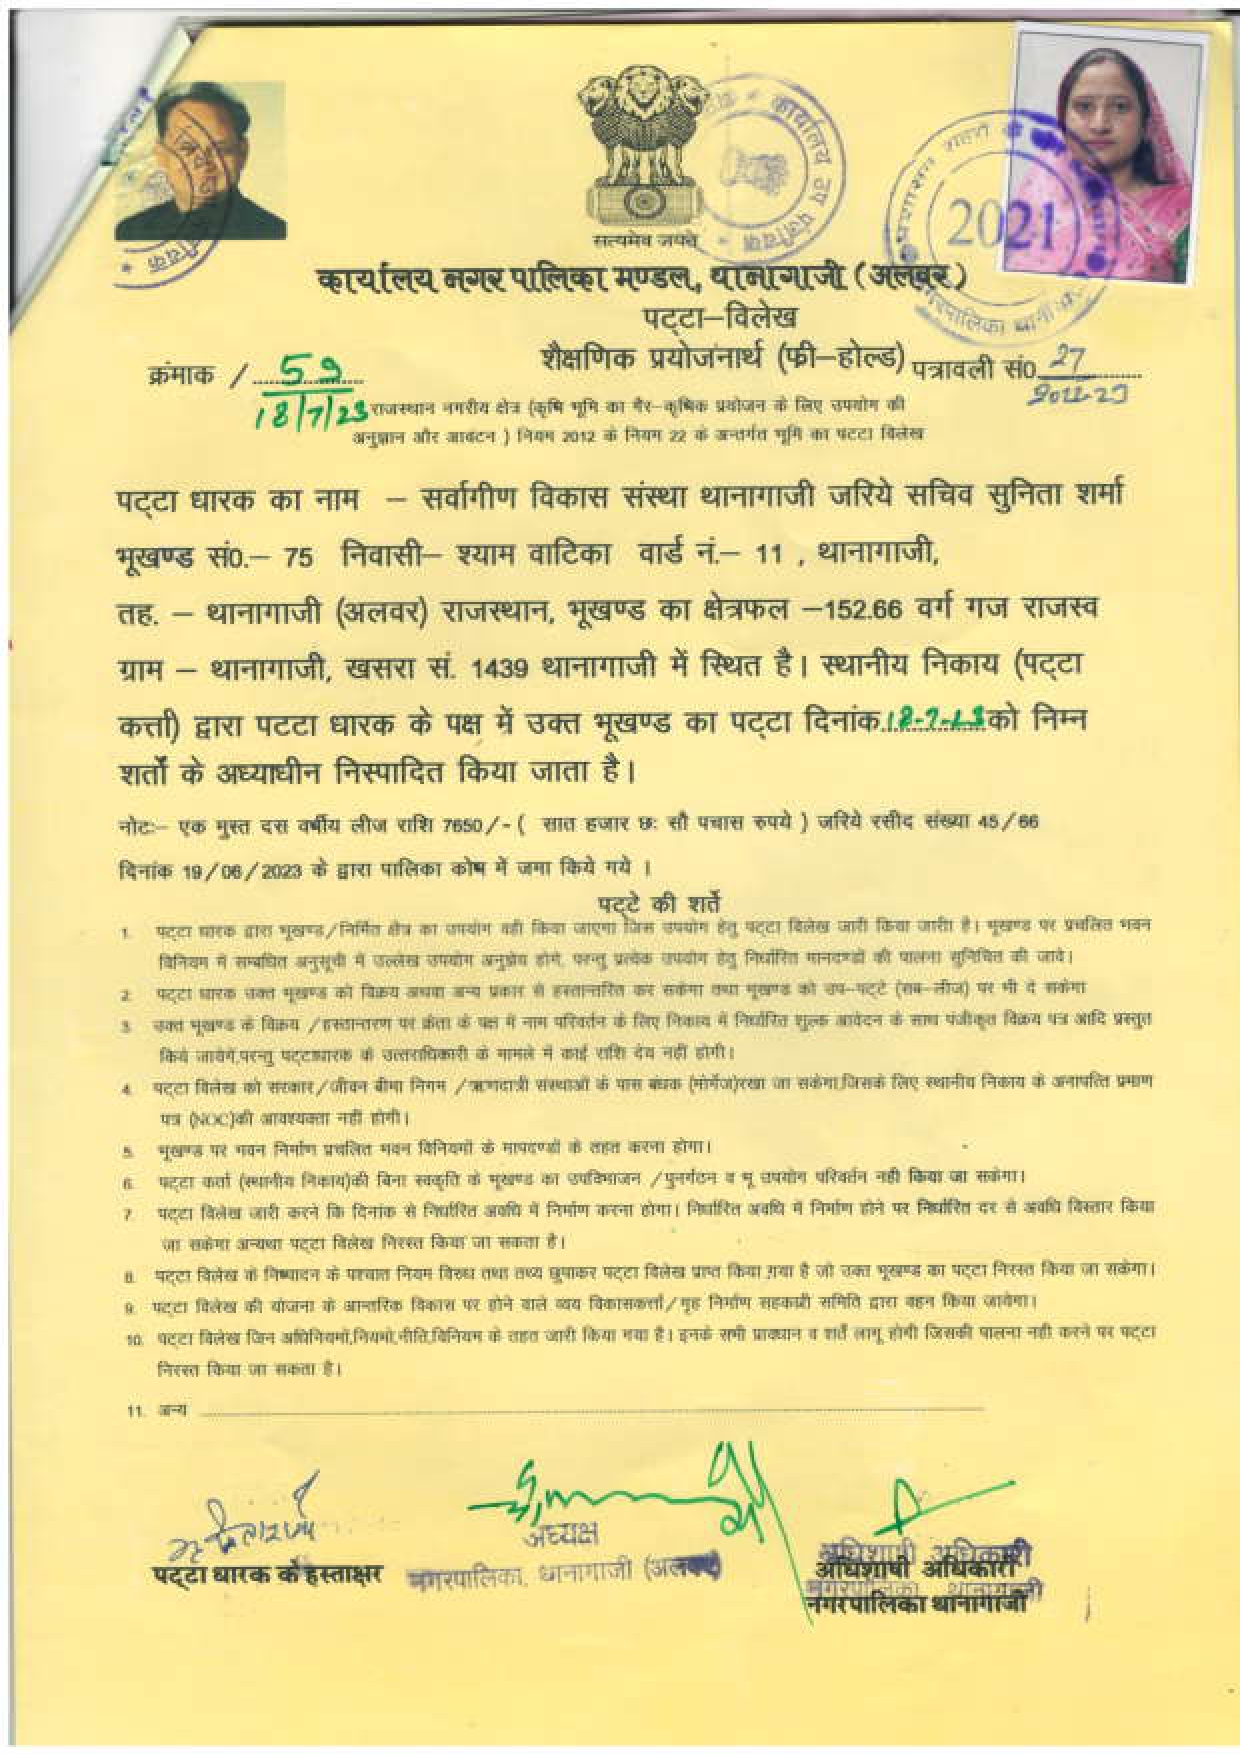 सत्यमेव जयते
2021
कार्यालय नगर पालिका मण्डल, थानागाजी (अलवर)
पट्टा–विलेख
शैक्षणिक प्रयोजनार्थ (फ्री–होल्ड)
क्रंमाक / 59
18/7/23
पत्रावली सं0 27
2022-23
राजस्थान नगरीय क्षेत्र (कृषि भूमि का गैर–कृषिक प्रयोजन के लिए उपयोग की
अनुज्ञान और आवंटन ) नियम 2012 के नियम 22 के अन्तर्गत भूमि का पटटा विलेख
पट्टा धारक का नाम – सर्वागीण विकास संस्था थानागाजी जरिये सचिव सुनिता शर्मा
भूखण्ड सं0.– 75 निवासी– श्याम वाटिका वार्ड नं.– 11 , थानागाजी,
तह. – थानागाजी (अलवर) राजस्थान, भूखण्ड का क्षेत्रफल –152.66 वर्ग गज राजस्व
ग्राम – थानागाजी, खसरा सं. 1439 थानागाजी में स्थित है। स्थानीय निकाय (पट्टा
कर्त्ता) द्वारा पटटा धारक के पक्ष में उक्त भूखण्ड का पट्टा दिनांक 18-7-23 को निम्न
शर्तो के अध्याधीन निस्पादित किया जाता है।
नोटः– एक मुस्त दस वर्षीय लीज राशि 7650/- ( सात हजार छः सौ पचास रुपये ) जरिये रसीद संख्या 45/66
दिनांक 19/06/2023 के द्वारा पालिका कोष में जमा किये गये ।
पट्टे की शर्ते
1. पट्टा धारक द्वारा भूखण्ड/निर्मित क्षेत्र का उपयोग वही किया जाएगा जिस उपयोग हेतु पट्टा विलेख जारी किया जारी है। भूखण्ड पर प्रचलित भवन
विनियम में सम्बधित अनुसूची में उल्लेख उपयोग अनुज्ञेय होगे, परन्तु प्रत्येक उपयोग हेतु निर्धारित मानदण्डों की पालना सुनिचित की जावे।
2. पट्टा धारक उक्त भूखण्ड को विक्रय अथवा अन्य प्रकार से हस्तान्तरित कर सकेगा तथा भूखण्ड को उप–पट्टे (सब–लीज) पर भी दे सकेगा
3. उक्त भूखण्ड के विक्रय /हस्तान्तरण पर क्रेता के पक्ष में नाम परिवर्तन के लिए निकाय में निर्धारित शुल्क आवेदन के साथ पंजीकृत विक्रय पत्र आदि प्रस्तुत
किये जायेगें,परन्तु पट्टाधारक के उत्तराधिकारी के मामले में काई राशि देय नहीं होगी।
4. पट्टा विलेख को सरकार/जीवन बीमा निगम /ऋणदात्री संस्थाओं के पास बंधक (मोर्गेज)रखा जा सकेगा,जिसके लिए स्थानीय निकाय के अनापत्ति प्रमाण
पत्र (NOC)की आवश्यक्ता नही होगी।
5. भूखण्ड पर भवन निर्माण प्रचलित भवन विनियमों के मापदण्डों के तहत करना होगा।
6. पट्टा कर्ता (स्थानीय निकाय)की बिना स्वकृति के भूखण्ड का उपविभाजन /पुनर्गठन व भू उपयोग परिवर्तन नही किया जा सकेगा।
7. पट्टा विलेख जारी करने कि दिनांक से निर्धारित अवधि में निर्माण करना होगा। निर्धारित अवधि में निर्माण होने पर निर्धारित दर से अवधि विस्तार किया
जा सकेगा अन्यथा पट्टा विलेख निरस्त किया जा सकता है।
8. पट्टा विलेख के निष्पादन के पश्चात नियम विरुध तथा तथ्य छुपाकर पट्टा विलेख प्राप्त किया गया है जो उक्त भूखण्ड का पट्टा निरस्त किया जा सकेगा।
9. पट्टा विलेख की योजना के आन्तरिक विकास पर होने वाले व्यय विकासकर्त्ता/गृह निर्माण सहकारी समिति द्वारा वहन किया जायेगा।
10. पट्टा विलेख जिन अधिनियमों,नियमो,नीति,विनियम के तहत जारी किया गया है। इनके सभी प्रावधान व शर्ते लागू होगी जिसकी पालना नही करने पर पट्टा
निरस्त किया जा सकता है।
11. अन्य
पट्टा धारक के हस्ताक्षर
अध्यक्ष
नगरपालिका, थानागाजी (अलवर)
अधिशाषी अधिकारी
नगरपालिका थानागाजी